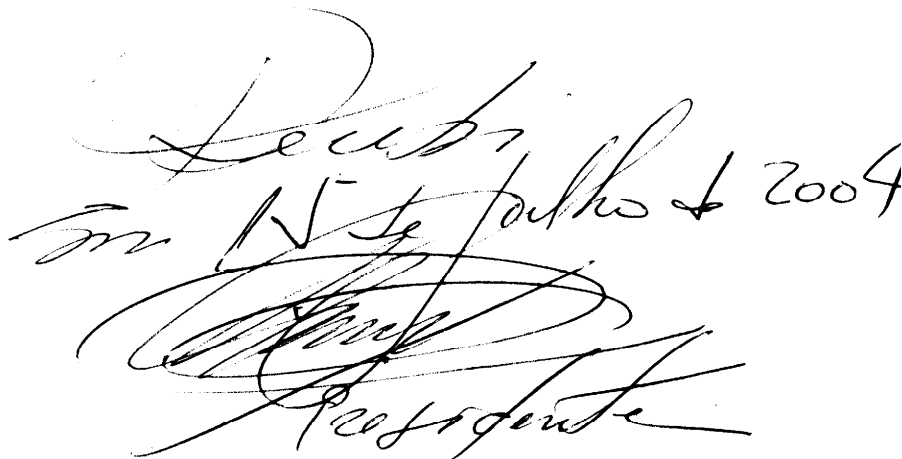 Recebi
Em 15 de julho de 2004
Presidente